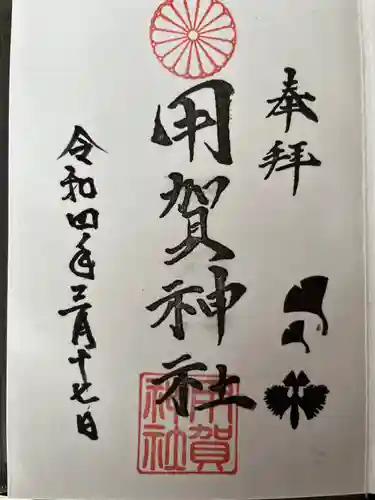 奉拝
用賀神社
用賀神社
令和四年三月十七日